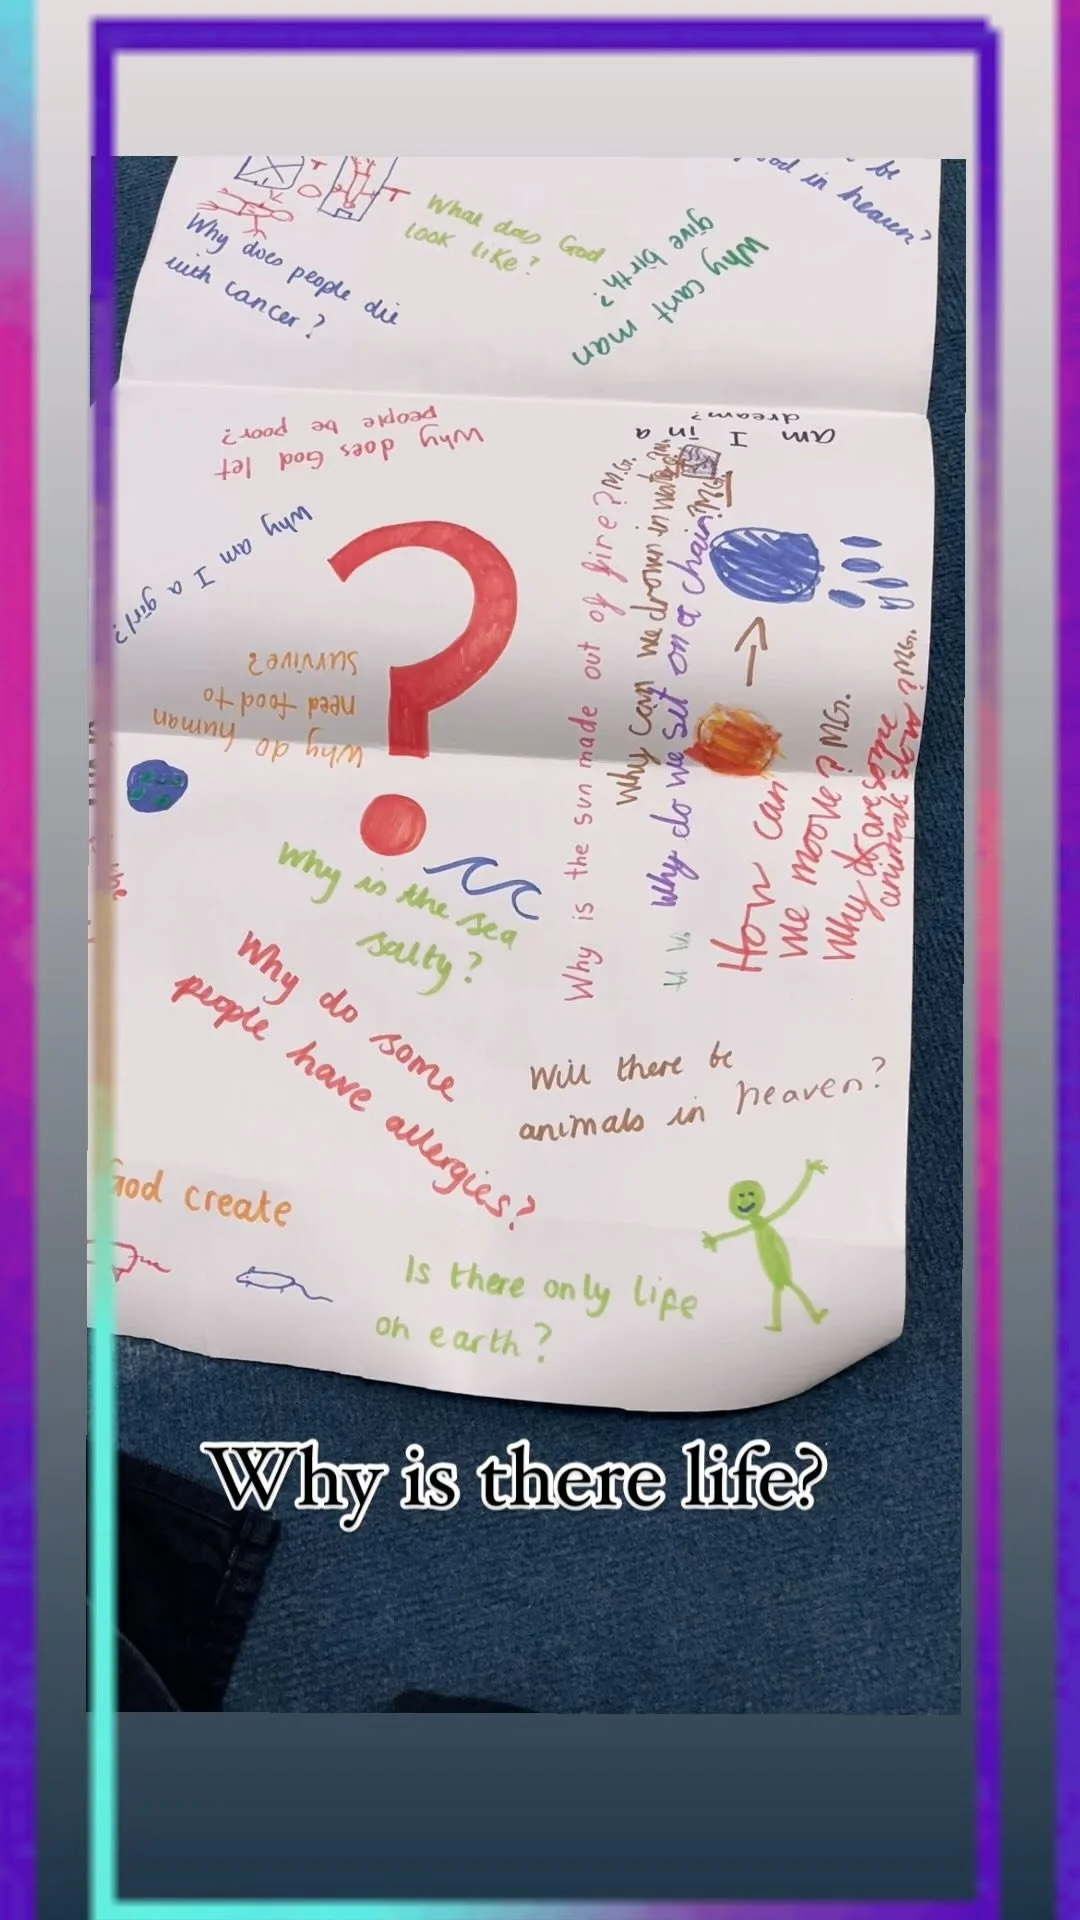 Why does people die
with cancer?
What does God
look like?
Why cant man
give birth?
be
in heaven?
Why does God let
people be poor?
am I in a
dream?
Why am I a girl?
Why do human
need food to
survive?
Why is the sun made out of fire? M.G.
Why can we drown in
Why do we set on a chair? M.G.
How can
we moove? M.G.
Why are some
animals slow? M.G.
the
Why is the sea
salty?
Why do some
people have
allergies?
Will there be
animals in heaven?
God create
Is there only life
on earth?
Why is there life?